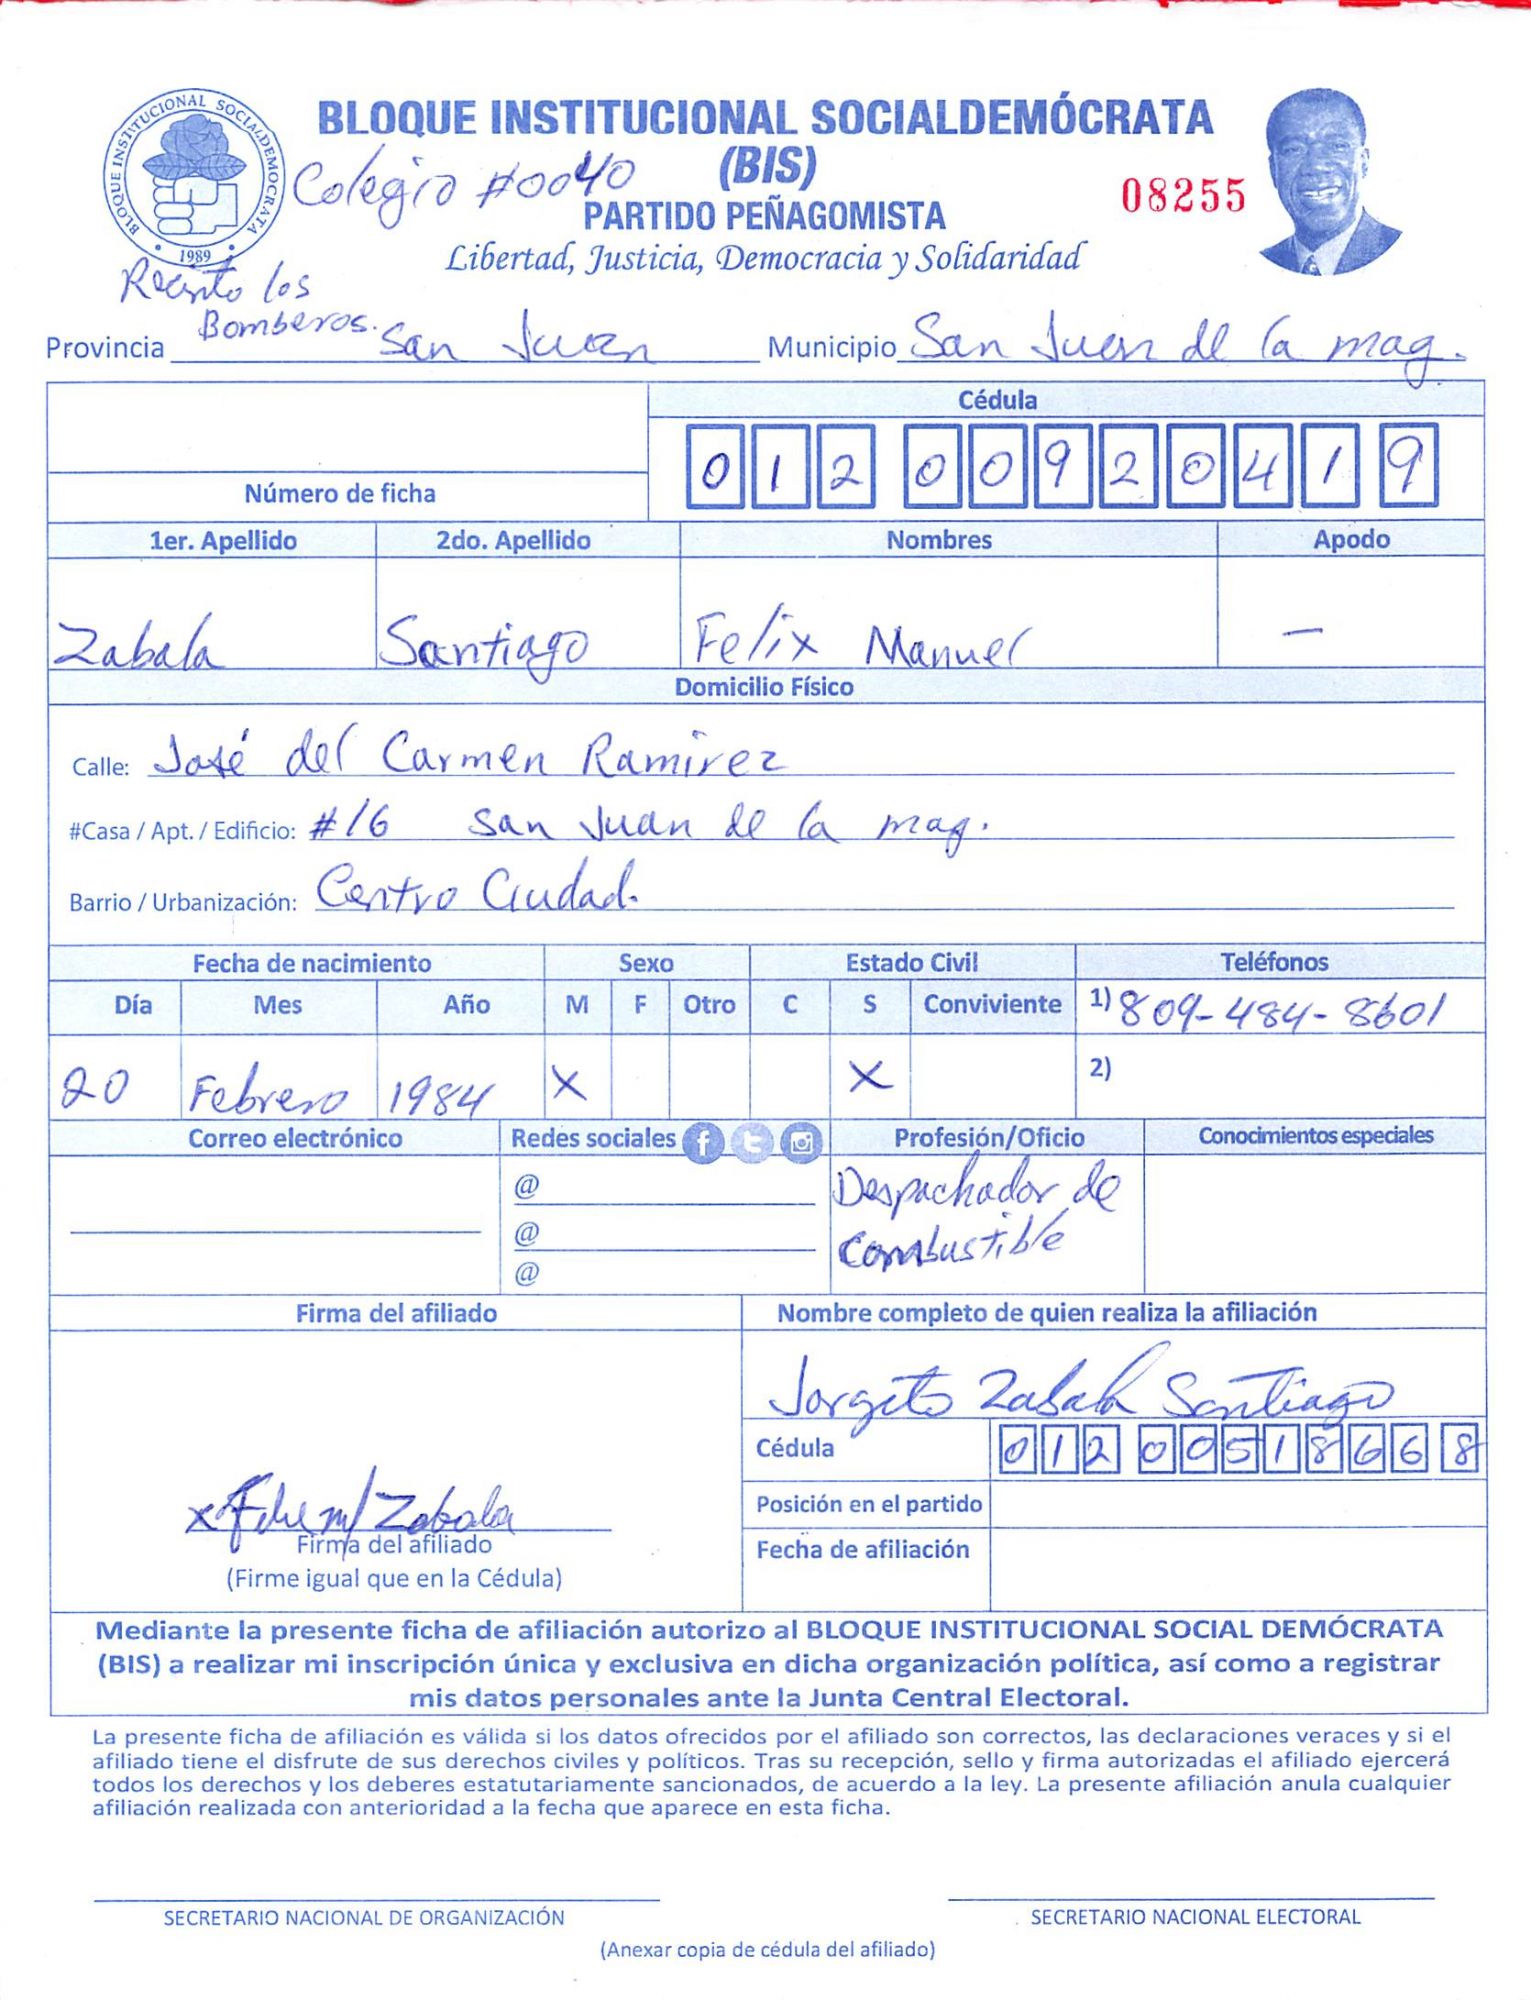 BLOQUE INSTITUCIONAL SOCIALDEMÓCRATA
(BIS)
Colegio #0040
08255
PARTIDO PEÑAGOMISTA
Libertad, Justicia, Democracia y Solidaridad
BLOQUE INSTITUCIONAL SOCIALDEMOCRATA
• 1989 •
Recinto los
Bomberos.
Provincia San Juan Municipio San Juan de la mag.
Cédula
0 1 2 0 0 9 2 0 4 1 9
Número de ficha
1er. Apellido 2do. Apellido Nombres Apodo
Zabala Santiago Felix Manuel —
Domicilio Físico
Calle: José del Carmen Ramirez
#Casa / Apt. / Edificio: #16 San Juan de la mag.
Barrio / Urbanización: Centro Ciudad.
Fecha de nacimiento Sexo Estado Civil Teléfonos
Día Mes Año M F Otro C S Conviviente 1) 809-484-8601
20 Febrero 1984 X X 2)
Correo electrónico Redes sociales Profesión/Oficio Conocimientos especiales
@ Despachador de
@ Combustible
@
Firma del afiliado Nombre completo de quien realiza la afiliación
Jorgito Zabala Santiago
Cédula 0 1 2 0 0 5 1 8 6 6 8
Posición en el partido
x Zabala
Firma del afiliado
Fecha de afiliación
(Firme igual que en la Cédula)
Mediante la presente ficha de afiliación autorizo al BLOQUE INSTITUCIONAL SOCIAL DEMÓCRATA
(BIS) a realizar mi inscripción única y exclusiva en dicha organización política, así como a registrar
mis datos personales ante la Junta Central Electoral.
La presente ficha de afiliación es válida si los datos ofrecidos por el afiliado son correctos, las declaraciones veraces y si el
afiliado tiene el disfrute de sus derechos civiles y políticos. Tras su recepción, sello y firma autorizadas el afiliado ejercerá
todos los derechos y los deberes estatutariamente sancionados, de acuerdo a la ley. La presente afiliación anula cualquier
afiliación realizada con anterioridad a la fecha que aparece en esta ficha.
SECRETARIO NACIONAL DE ORGANIZACIÓN SECRETARIO NACIONAL ELECTORAL
(Anexar copia de cédula del afiliado)